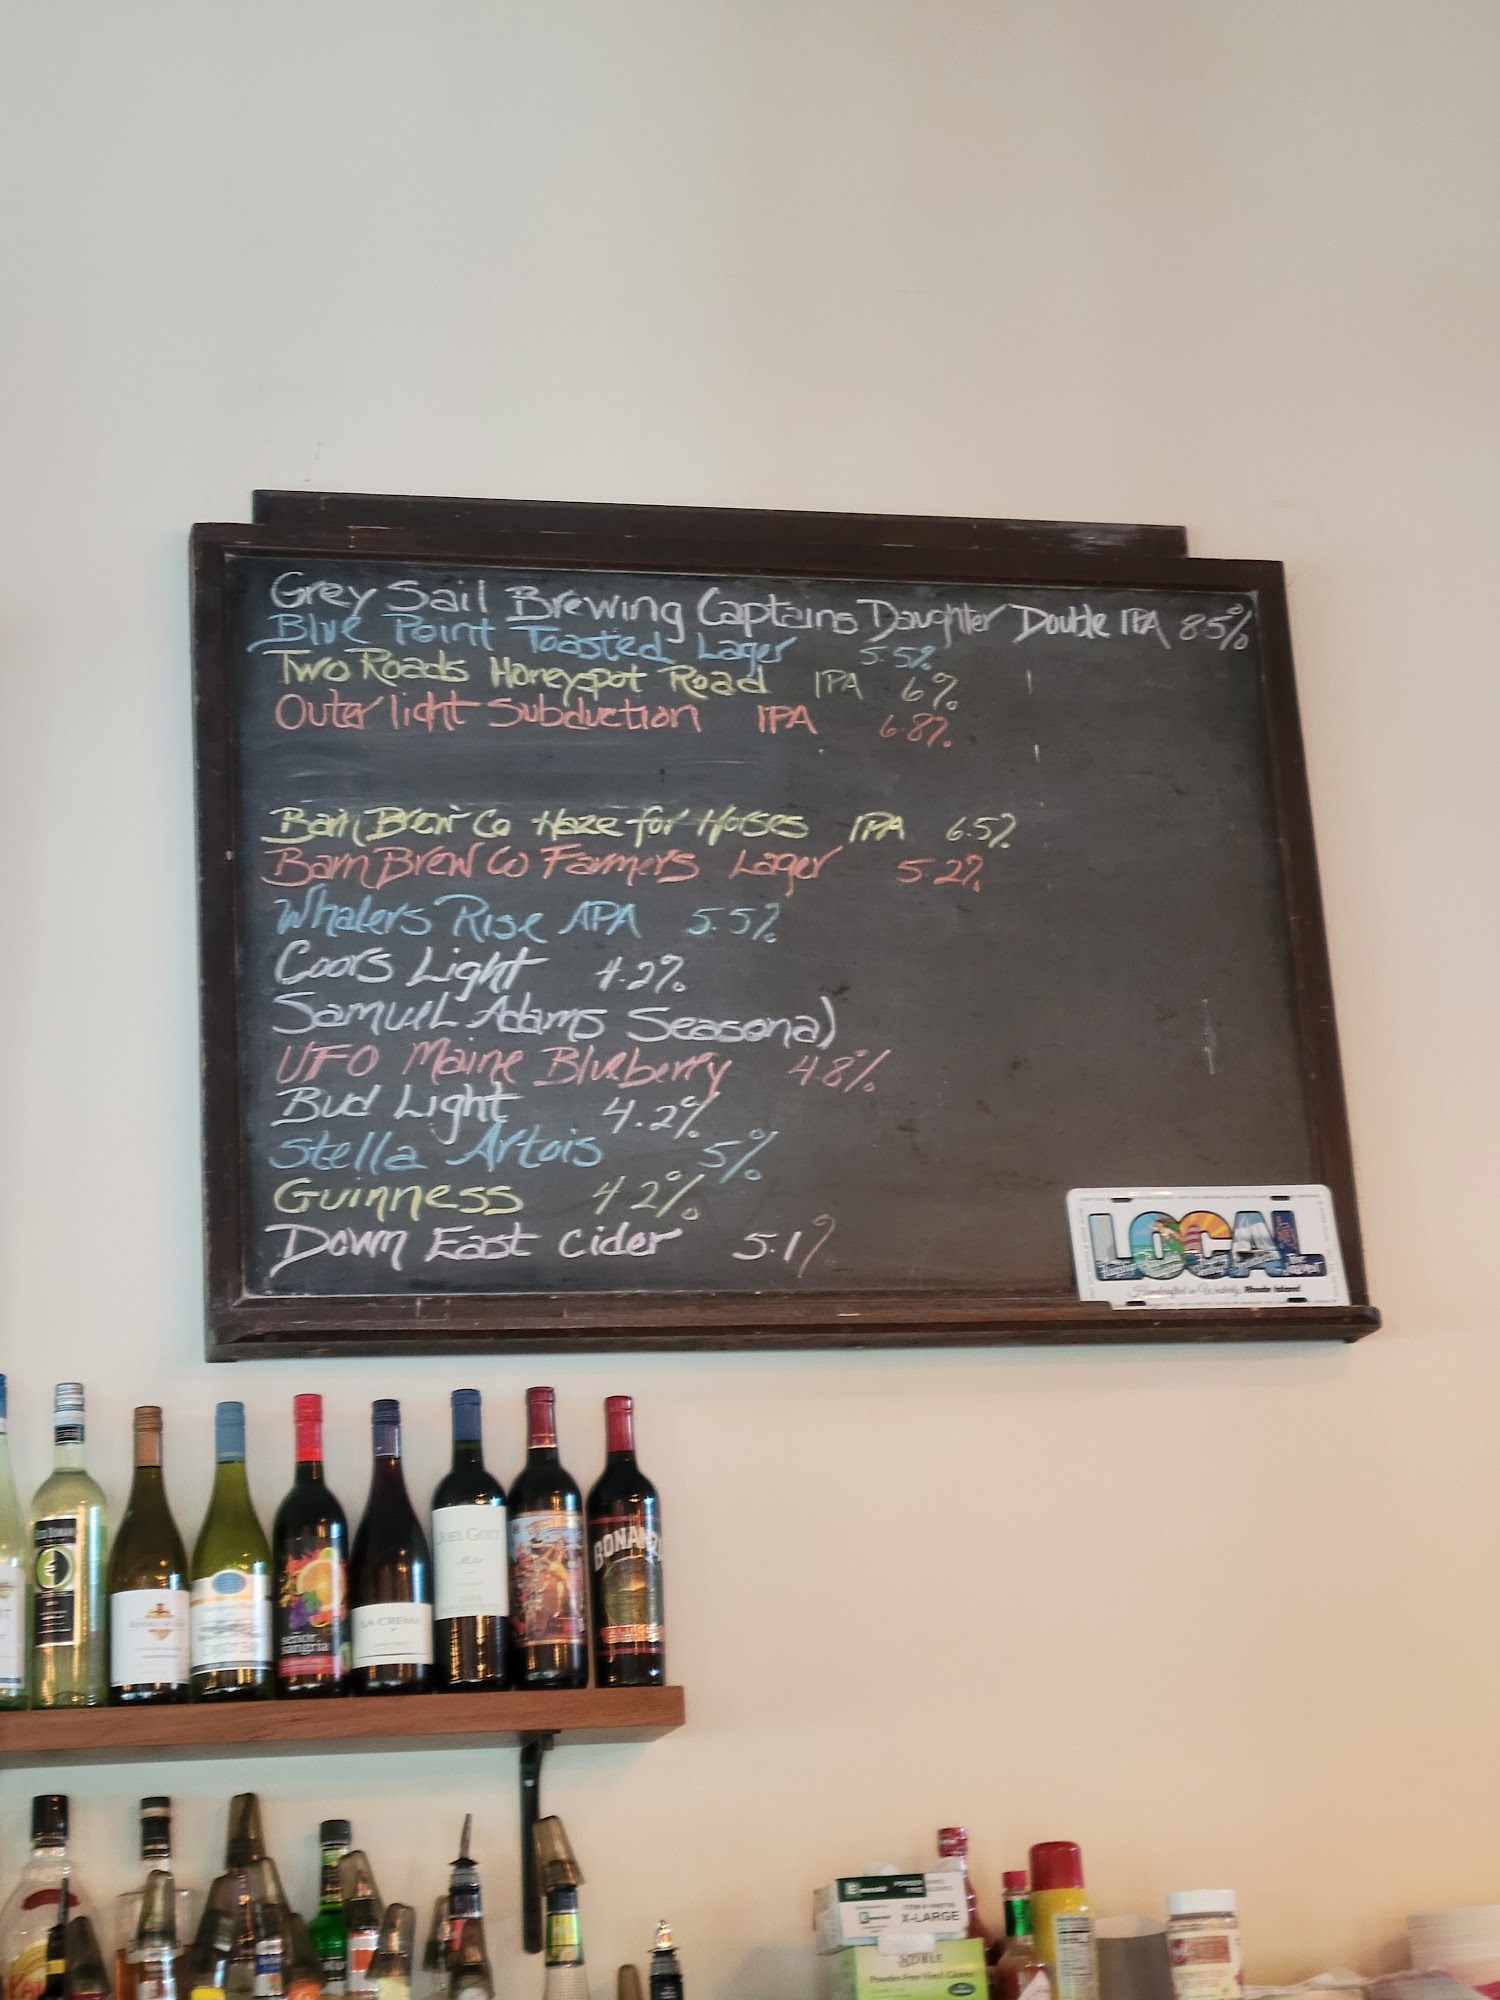 Grey Sail Brewing Captains Daughter Double IPA 8.5%
Blue Point Toasted Lager 5.5%
Two Roads Honeyspot Road IPA 6%
Outer light Subduction IPA 6.8%
Barn Brew Co Haze for Horses IPA 6.5%
Barn Brew Co Farmers Lager 5.2%
Whalers Rise APA 5.5%
Coors Light 4.2%
Samuel Adams Seasonal
UFO Maine Blueberry 4.8%
Bud Light 4.2%
Stella Artois 5%
Guinness 4.2%
Down East Cider 5.1%
LOCAL
Handcrafted in Westerly, Rhode Island
JOEL GOTT
Merlot
BONANZA
LA CREMA
Oyster Bay
señor
sangria
POWDER
FREE
X-LARGE
NOBLE
Powder-Free Vinyl Gloves